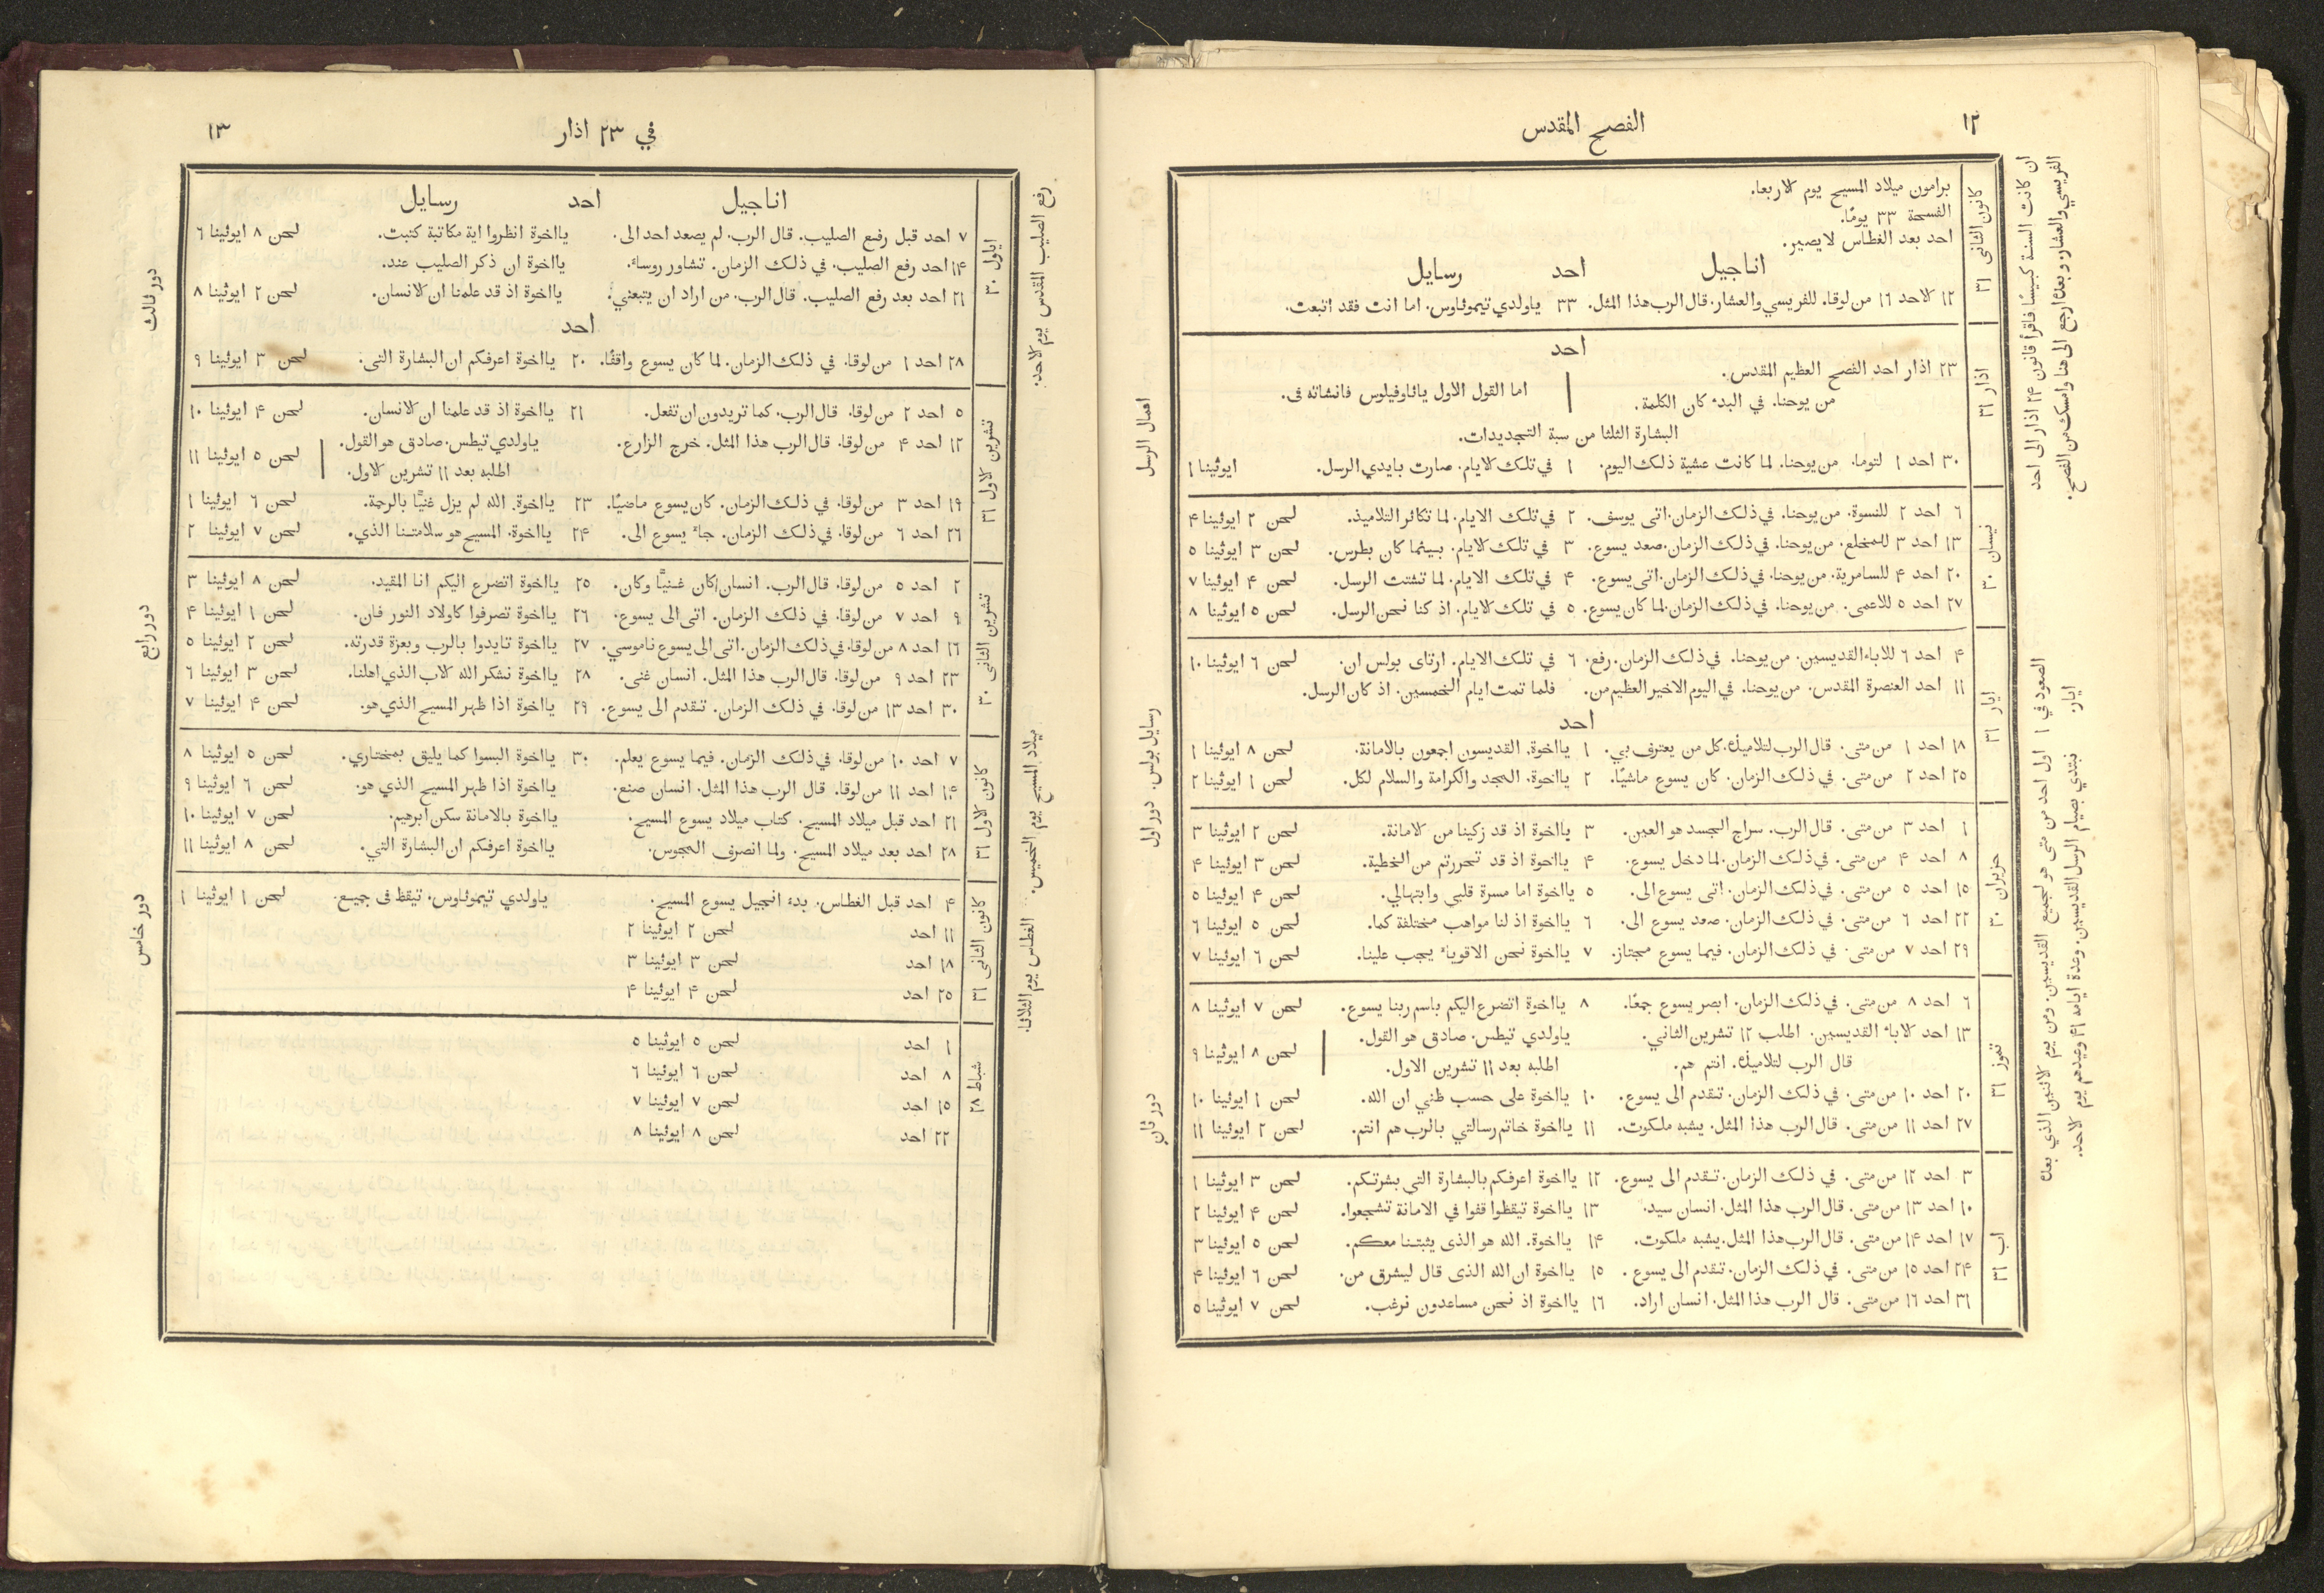 ١٢
الفصح المقدس
ان كانت السنة كبيسًا. فاقرأ قانون ٢۴ اذار الى احد
الفريسي والعشار. وبعدﮤ ارجع الى هنا وامسك من الفصح.
كانون الثانى ٣١
برامون ميلاد المسيح يوم الاربعا.
الفسحة ٣٣ يومًا.
احد بعد الغطاس لا يصير.
اناجيل احد رسايل
١٢ الاحد ١٦ من لوقا. للفريسي والعشار. قال الرب هذا المثل. ٣٣ ياولدي تيموثاوس. اما انت فقد اتبعت.
احد
اذار ٣١
٢٣ اذار احد الفصح العظيم المقدس.
من يوحنا. في البدء كان الكلمة. اما القول الاول ياثاوفيلوس فانشاته فى.
البشارة الثلثا من سبة التجديدات.
٣٠ احد ١ لتوما. من يوحنا. لما كانت عشية ذلك اليوم. ١ في تلك الايام. صارت بايدي الرسل. ايوثينا ١
اعمال الرسل
نيسان ٣٠
٦ احد ٢ للنسوة. من يوحنا. في ذلك الزمان. اتى يوسف. ٢ في تلك الايام. لما تكاثر التلاميذ. لحن ٢ ايوثينا ۴
١٣ احد ٣ للمخلع. من يوحنا. في ذلك الزمان. صعد يسوع. ٣ في تلك الايام. بينما كان بطرس. لحن ٣ ايوثينا ٥
٢٠ احد ۴ للسامرية. من يوحنا. في ذلك الزمان. اتى يسوع. ۴ في تلك الايام. لما تشتت الرسل. لحن ۴ ايوثينا ٧
٢٧ احد ٥ للاعمى. من يوحنا. في ذلك الزمان. لما كان يسوع. ٥ في تلك الايام. اذ كنا نحن الرسل. لحن ٥ ايوثينا ٨
ايار ٣١
۴ احد ٦ للاباء القديسين. من يوحنا. في ذلك الزمان. رفع. ٦ في تلك الايام. ارتاى بولس ان. لحن ٦ ايوثينا ١٠
١١ احد العنصرة المقدس. من يوحنا. في اليوم الاخير العظيم من. فلما تمت ايام الخمسين. اذ كان الرسل.
احد
١٨ احد ١ من متى. قال الرب لتلاميذﮤ. كل من يعترف بي. ١ يااخوة. القديسون اجمعون بالامانة. لحن ٨ ايوثينا ١
٢٥ احد ٢ من متى. في ذلك الزمان. كان يسوع ماشيًا. ٢ يااخوة. المجد والكرامة والسلام لكل. لحن ١ ايوثينا ٢
رسايل بولس. دور اول
الصعود في ١ ايار.
اول احد من متى هو لجميع القديسين. ومن يوم الاثنين الذي بعدﮤ
نبتدي بصيام الرسل القديسين. وعدة ايامه ۴١ وعيدهم يوم الاحد.
حزيران ٣٠
١ احد ٣ من متى. قال الرب. سراج الجسد هو العين. ٣ يااخوة اذ قد زكينا من الامانة. لحن ٢ ايوثينا ٣
٨ احد ۴ من متى. في ذلك الزمان. لما دخل يسوع. ۴ يااخوة اذ قد تحررتم من الخطية. لحن ٣ ايوثينا ۴
١٥ احد ٥ من متى. في ذلك الزمان. اتى يسوع الى. ٥ يااخوة اما مسرة قلبى وابتهالي. لحن ۴ ايوثينا ٥
٢٢ احد ٦ من متى. في ذلك الزمان. صعد يسوع الى. ٦ يااخوة اذ لنا مواهب مختلفة كما. لحن ٥ ايوثينا ٦
٢٩ احد ٧ من متى. في ذلك الزمان. فيما يسوع مجتاز. ٧ يااخوة نحن الاقوياء يجب علينا. لحن ٦ ايوثينا ٧
تموز ٣١
٦ احد ٨ من متى. في ذلك الزمان. ابصر يسوع جمعًا. ٨ يااخوة اتضرع اليكم باسم ربنا يسوع. لحن ٧ ايوثينا ٨
١٣ احد الاباء القديسين. اطلب ١٢ تشرين الثاني. ياولدي تيطس. صادق هو القول.
قال الرب لتلاميذﮤ. انتم هم. اطلبه بعد ١١ تشرين الاول. لحن ٨ ايوثينا ٩
٢٠ احد ١٠ من متى. في ذلك الزمان. تقدم الى يسوع. ١٠ يااخوة على حسب ظني ان الله. لحن ١ ايوثينا ١٠
٢٧ احد ١١ من متى. قال الرب هذا المثل. يشبه ملكوت. ١١ يااخوة خاتم رسالتي بالرب هم انتم. لحن ٢ ايوثينا ١١
دور ثانٍ
اب ٣١
٣ احد ١٢ من متى. في ذلك الزمان. تقدم الى يسوع. ١٢ يااخوة اعرفكم بالبشارة التي بشرتكم. لحن ٣ ايوثينا ١
١٠ احد ١٣ من متى. قال الرب هذا المثل. انسان سيد. ١٣ يااخوة تيقظوا قفوا في الامانة تشجعوا. لحن ۴ ايوثينا ٢
١٧ احد ١۴ من متى. قال الرب هذا المثل. يشبه ملكوت. ١۴ يااخوة. الله هو الذى يثبتنا معكم. لحن ٥ ايوثينا ٣
٢۴ احد ١٥ من متى. في ذلك الزمان. تقدم الى يسوع. ١٥ يااخوة ان الله الذى قال ليشرق من. لحن ٦ ايوثينا ۴
٣١ احد ١٦ من متى. قال الرب هذا المثل. انسان اراد. ١٦ يااخوة اذ نحن مساعدون نرغب. لحن ٧ ايوثينا ٥
في ٢٣ اذار
١٣
رفع الصليب المقدس يوم الاحد.
اناجيل احد رسايل
ايلول ٣٠
٧ احد قبل رفع الصليب. قال الرب. لم يصعد احد الى. يااخوة انظروا اية مكاتبة كتبت. لحن ٨ ايوثينا ٦
١۴ احد رفع الصليب. في ذلك الزمان. تشاور روساء. يااخوة ان ذكر الصليب عند.
٢١ احد بعد رفع الصليب. قال الرب. من اراد ان يتبعني. يااخوة اذ قد علمنا ان الانسان. لحن ٢ ايوثينا ٨
احد
٢٨ احد ١ من لوقا. في ذلك الزمان. لما كان يسوع واقفًا. ٢٠ يااخوة اعرفكم ان البشارة التى. لحن ٣ ايوثينا ٩
دور ثالث
تشرين الاول ٣١
٥ احد ٢ من لوقا. قال الرب. كما تريدون ان تفعل. ٢١ يااخوة اذ قد علمنا ان الانسان. لحن ۴ ايوثينا ١٠
١٢ احد ۴ من لوقا. قال الرب هذا المثل. خرج الزارع. ياولدي تيطس. صادق هو القول.
اطلبه بعد ١١ تشرين الاول. لحن ٥ ايوثينا ١١
١٩ احد ٣ من لوقا. في ذلك الزمان. كان يسوع ماضيًا. ٢٣ يااخوة. الله لم يزل غنيًا بالرحمة. لحن ٦ ايوثينا ١
٢٦ احد ٦ من لوقا. في ذلك الزمان. جاء يسوع الى. ٢۴ يااخوة. المسيح هو سلامتنا الذي. لحن ٧ ايوثينا ٢
تشرين الثانى ٣٠
٢ احد ٥ من لوقا. قال الرب. انسان كان غنيًّا وكان. ٢٥ يااخوة اتضرع اليكم انا المقيد. لحن ٨ ايوثينا ٣
٩ احد ٧ من لوقا. في ذلك الزمان. اتى الى يسوع. ٢٦ يااخوة تصرفوا كاولاد النور فان. لحن ١ ايوثينا ۴
١٦ احد ٨ من لوقا. في ذلك الزمان. اتى الى يسوع ناموسي. ٢٧ يااخوة تايدوا بالرب وبعزة قدرته. لحن ٢ ايوثينا ٥
٢٣ احد ٩ من لوقا. قال الرب هذا المثل. انسان غنى. ٢٨ يااخوة نشكر الله الاب الذي اهلنا. لحن ٣ ايوثينا ٦
٣٠ احد ١٣ من لوقا. في ذلك الزمان. تقدم الى يسوع. ٢٩ يااخوة اذا ظهر المسيح الذي هو. لحن ۴ ايوثينا ٧
دور رابع
ميلاد المسيح يوم الخميس. الغطاس يوم الثلاثا.
كانون الاول ٣١
٧ احد ١٠ من لوقا. في ذلك الزمان. فيما يسوع يعلم. ٣٠ يااخوة البسوا كما يليق بمختاري. لحن ٥ ايوثينا ٨
١۴ احد ١١ من لوقا. قال الرب هذا المثل. انسان صنع. يااخوة اذا ظهر المسيح الذي هو. لحن ٦ ايوثينا ٩
٢١ احد قبل ميلاد المسيح. كتاب ميلاد يسوع المسيح. يااخوة بالامانة سكن ابرهيم. لحن ٧ ايوثينا ١٠
٢٨ احد بعد ميلاد المسيح. ولما انصرف المجوس. يااخوة اعرفكم ان البشارة التي. لحن ٨ ايوثينا ١١
كانون الثانى ٣١
۴ احد قبل الغطاس. بدء انجيل يسوع المسيح. ياولدي تيموثاوس. تيقظ فى جميع. لحن ١ ايوثينا ١
١١ احد لحن ٢ ايوثينا ٢
١٨ احد لحن ٣ ايوثينا ٣
٢٥ احد لحن ۴ ايوثينا ۴
دور خامس
شباط ٢٨
١ احد لحن ٥ ايوثينا ٥
٨ احد لحن ٦ ايوثينا ٦
١٥ احد لحن ٧ ايوثينا ٧
٢٢ احد لحن ٨ ايوثينا ٨